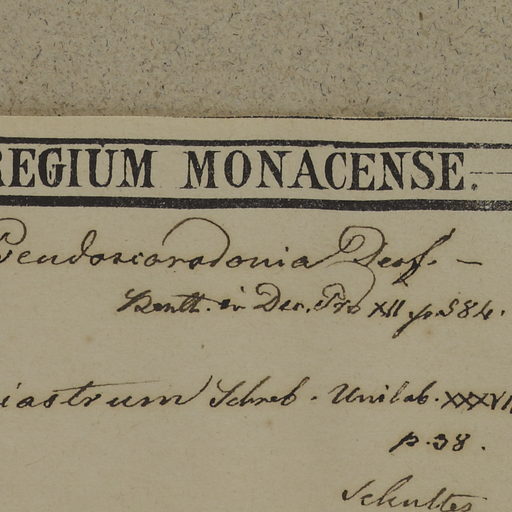 REGIUM MONACENSE.
Pseudoscorodonia Desf. —
Benth. in Dec. Pro XII p. 584.
iastrum Schreb. Unilab. XXXVII
p. 38.
Schultes